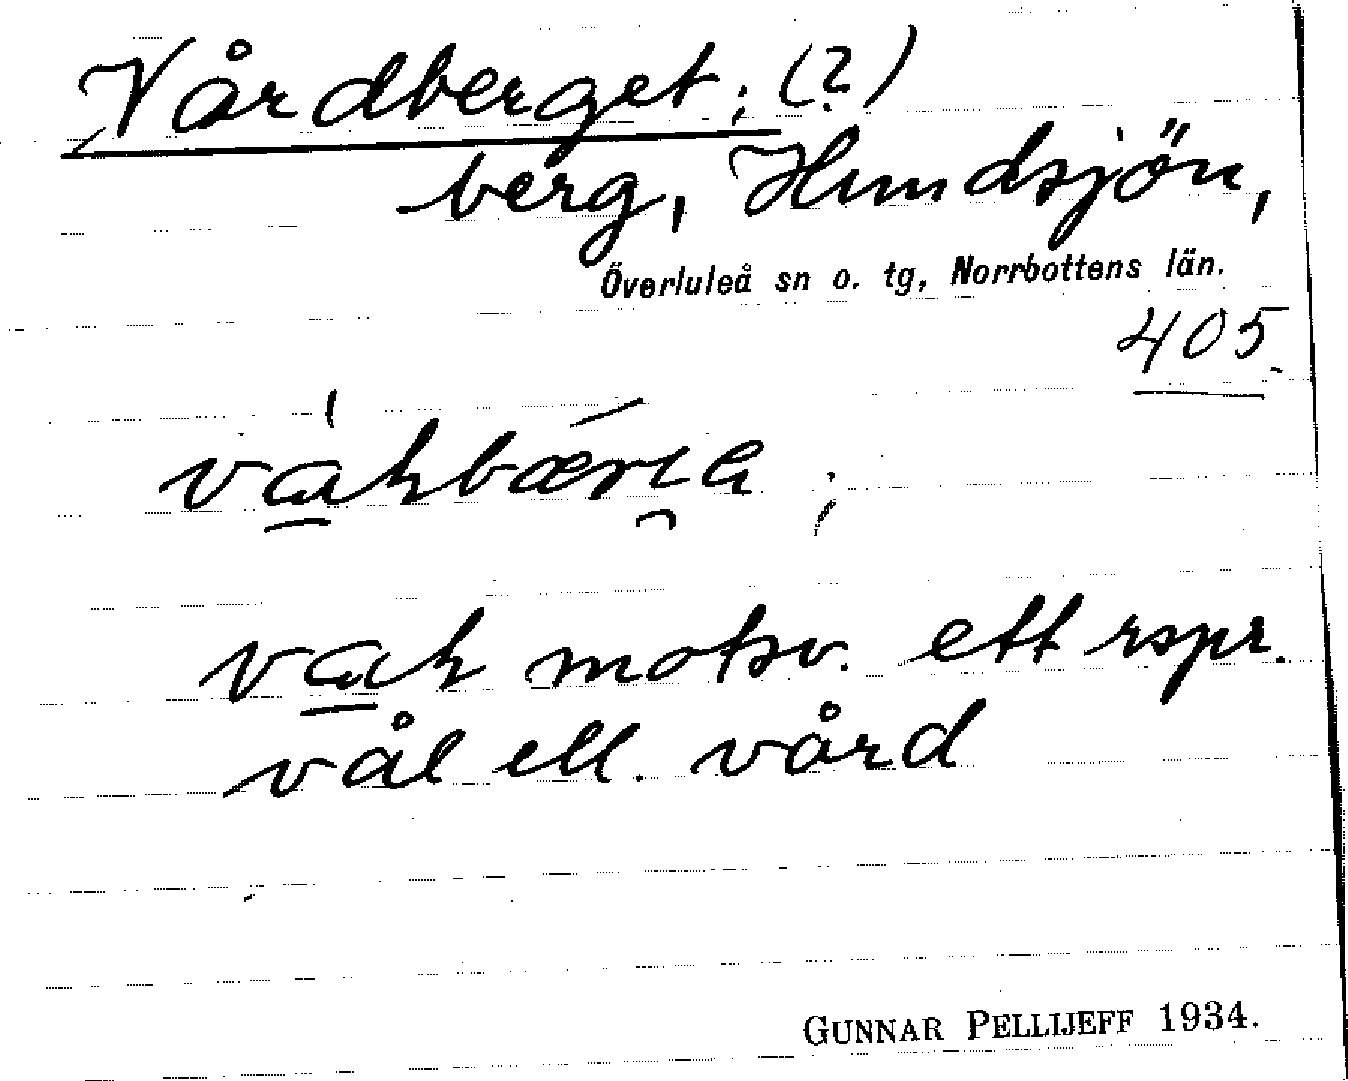 Vårdberget; (?)
berg, Hundsjön,
Överluleå sn o. tg, Norrbottens län.
405.
vak motsv. ett rspr.
vål ell. vård
GUNNAR PELLIJEFF 1934.